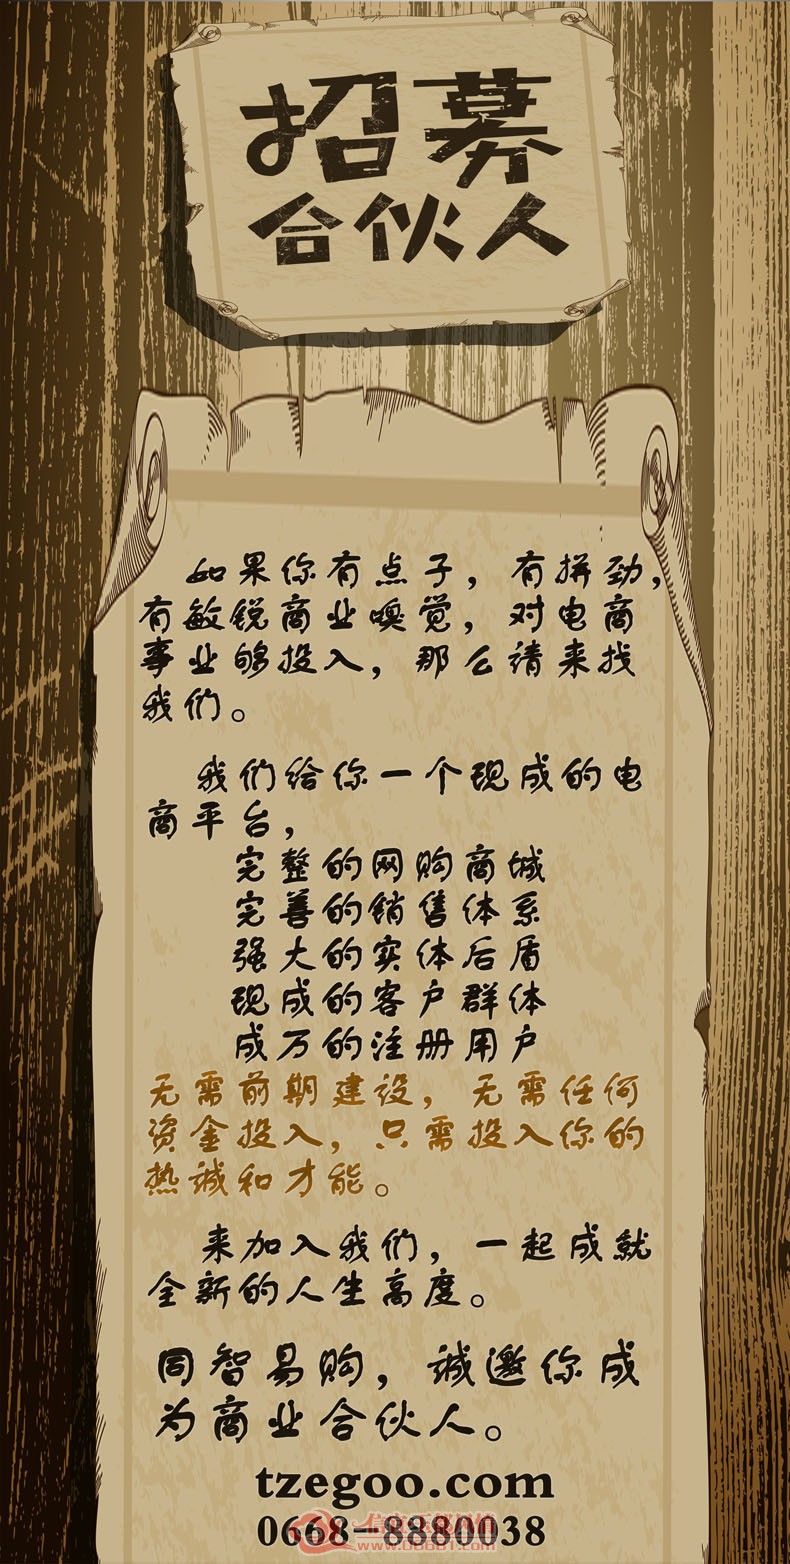 招募
合伙人
如果你有点子，有拼劲，
有敏锐商业嗅觉，对电商
事业够投入，那么请来找
我们。
我们给你一个现成的电
商平台，
完整的网购商城
完善的销售体系
强大的实体后盾
现成的客户群体
成万的注册用户
无需前期建设，无需任何
资金投入，只需投入你的
热诚和才能。
来加入我们，一起成就
全新的人生高度。
同智易购，诚邀你成
为商业合伙人。
tzegoo.com
0668-8880038